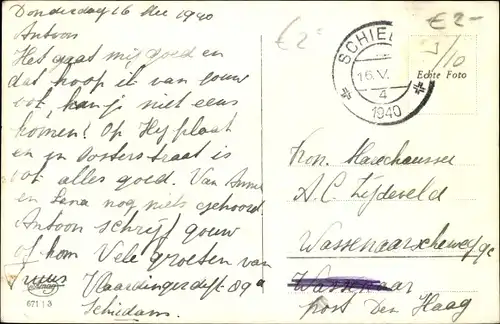 Donderdag 16 Mei 1940
Antoon
Het gaat mij goed en
dat hoop ik van jouw
ook kan je niet eens
komen! Op Heyplaat
en in Oosterstraat is
ook alles goed. Van Annie
en Lena nog niets gehoord.
Antoon schrijf gouw
of kom Vele groeten van
Vlaardingerdijk 89a
Schiedam.
671 | 3
€ 2-
€ 2-
1/10
SCHIE
16.V.
4
1940
Echte Foto
Kon. Marechaussee
A.C. Lijdeveld
Wassenaarscheweg 9c
Wassenaar
post Den Haag